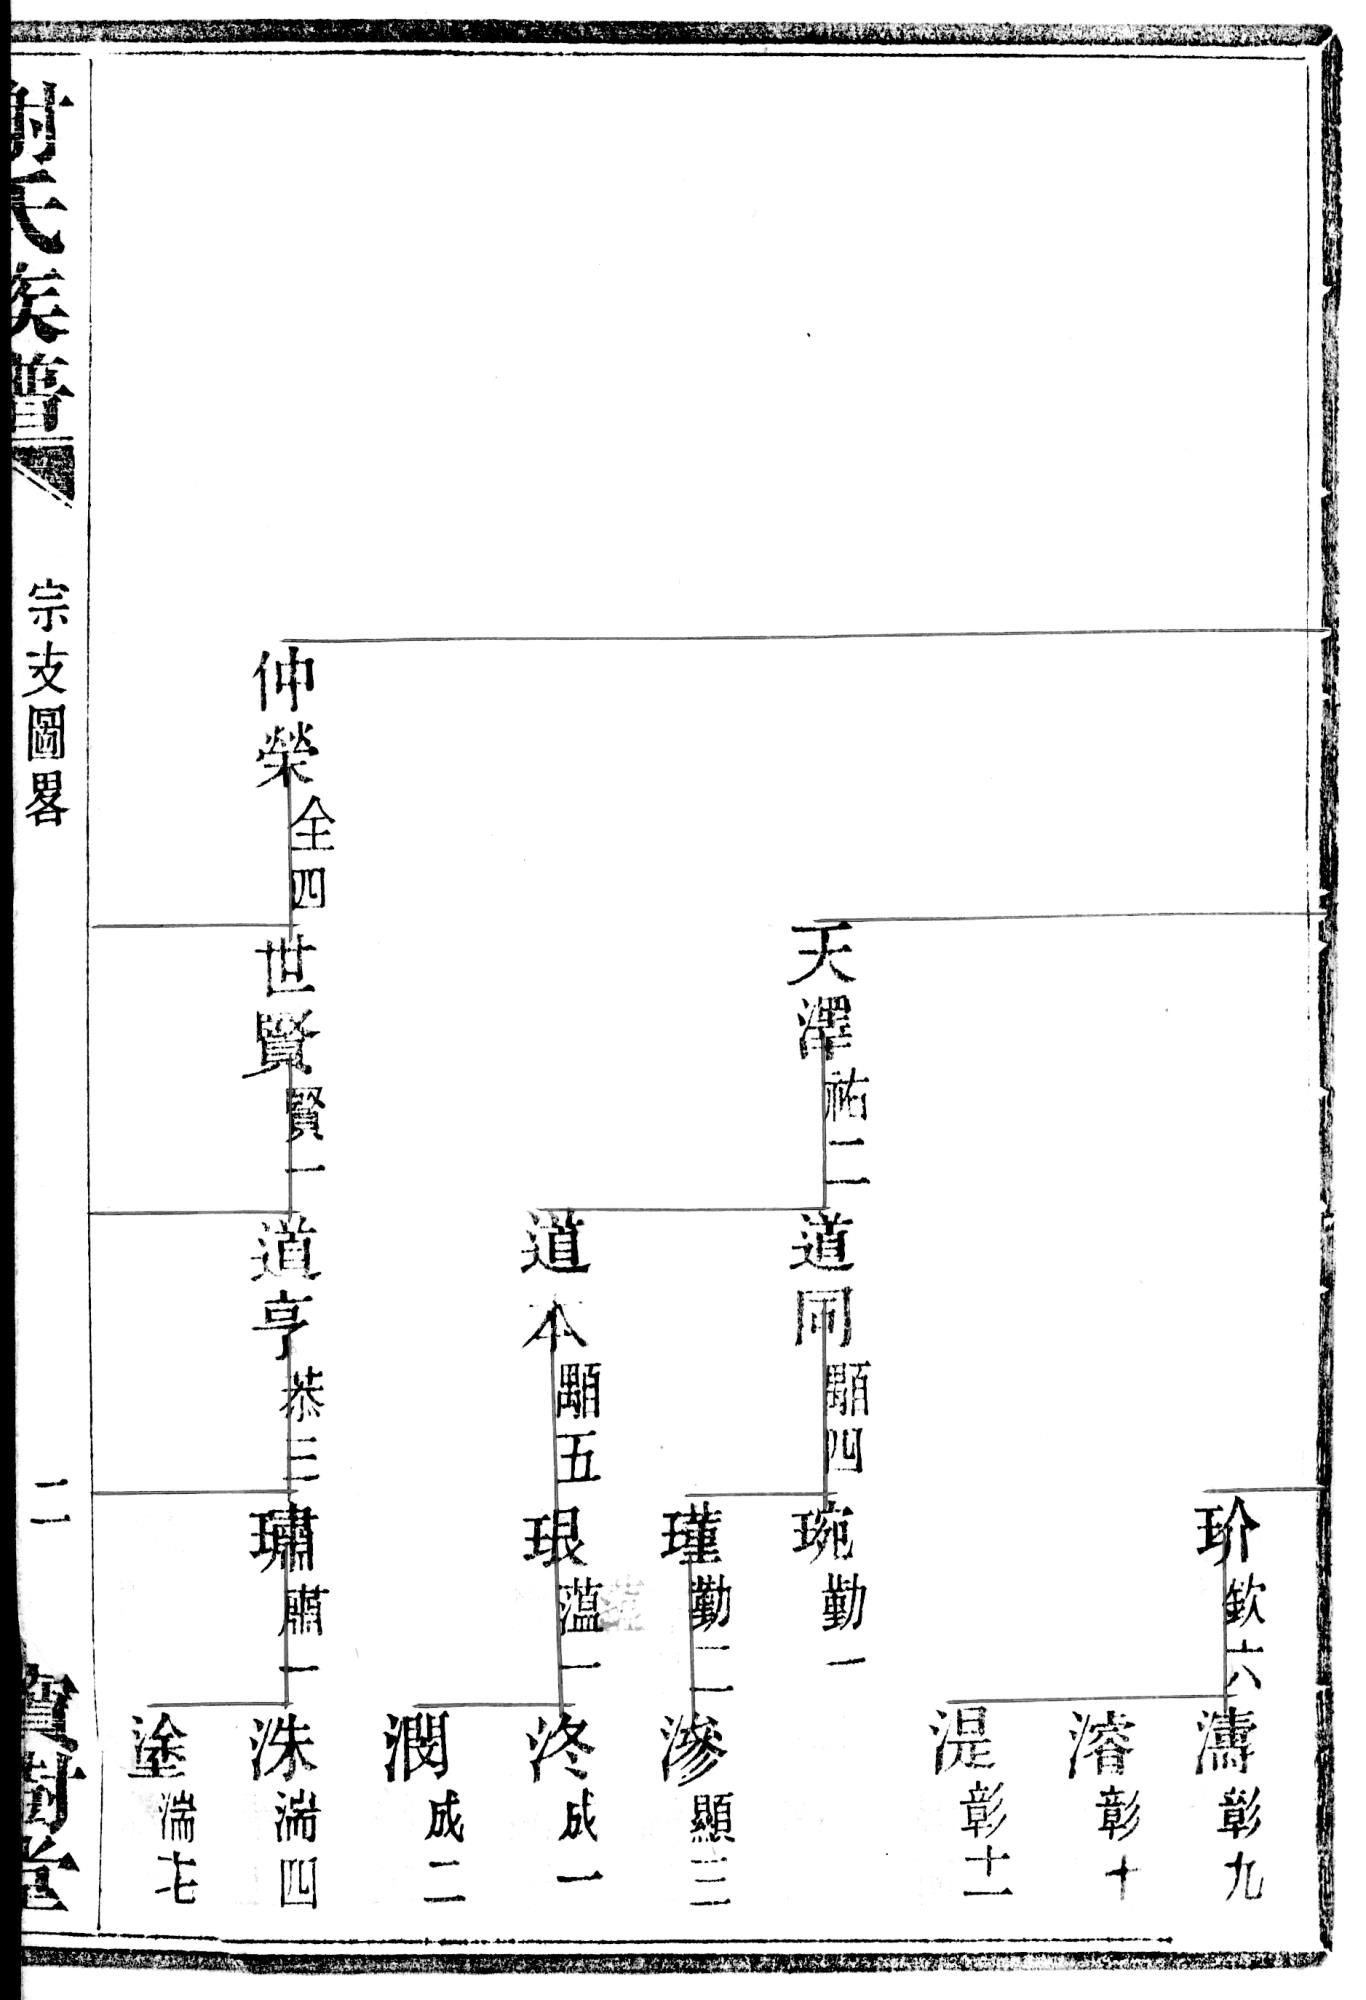 玠欽六
濤彰九
濬彰十
湜彰十一
天澤祐二
道同顯四
琬勤一
瑾勤二
滲顯三
道本顯五
珢薀一
泈成一
潤成二
仲榮全四
世賢賢一
道亨恭三
璛肅一
洙湍四
塗湍七
謝氏族譜
宗支圖畧
二
寶樹堂